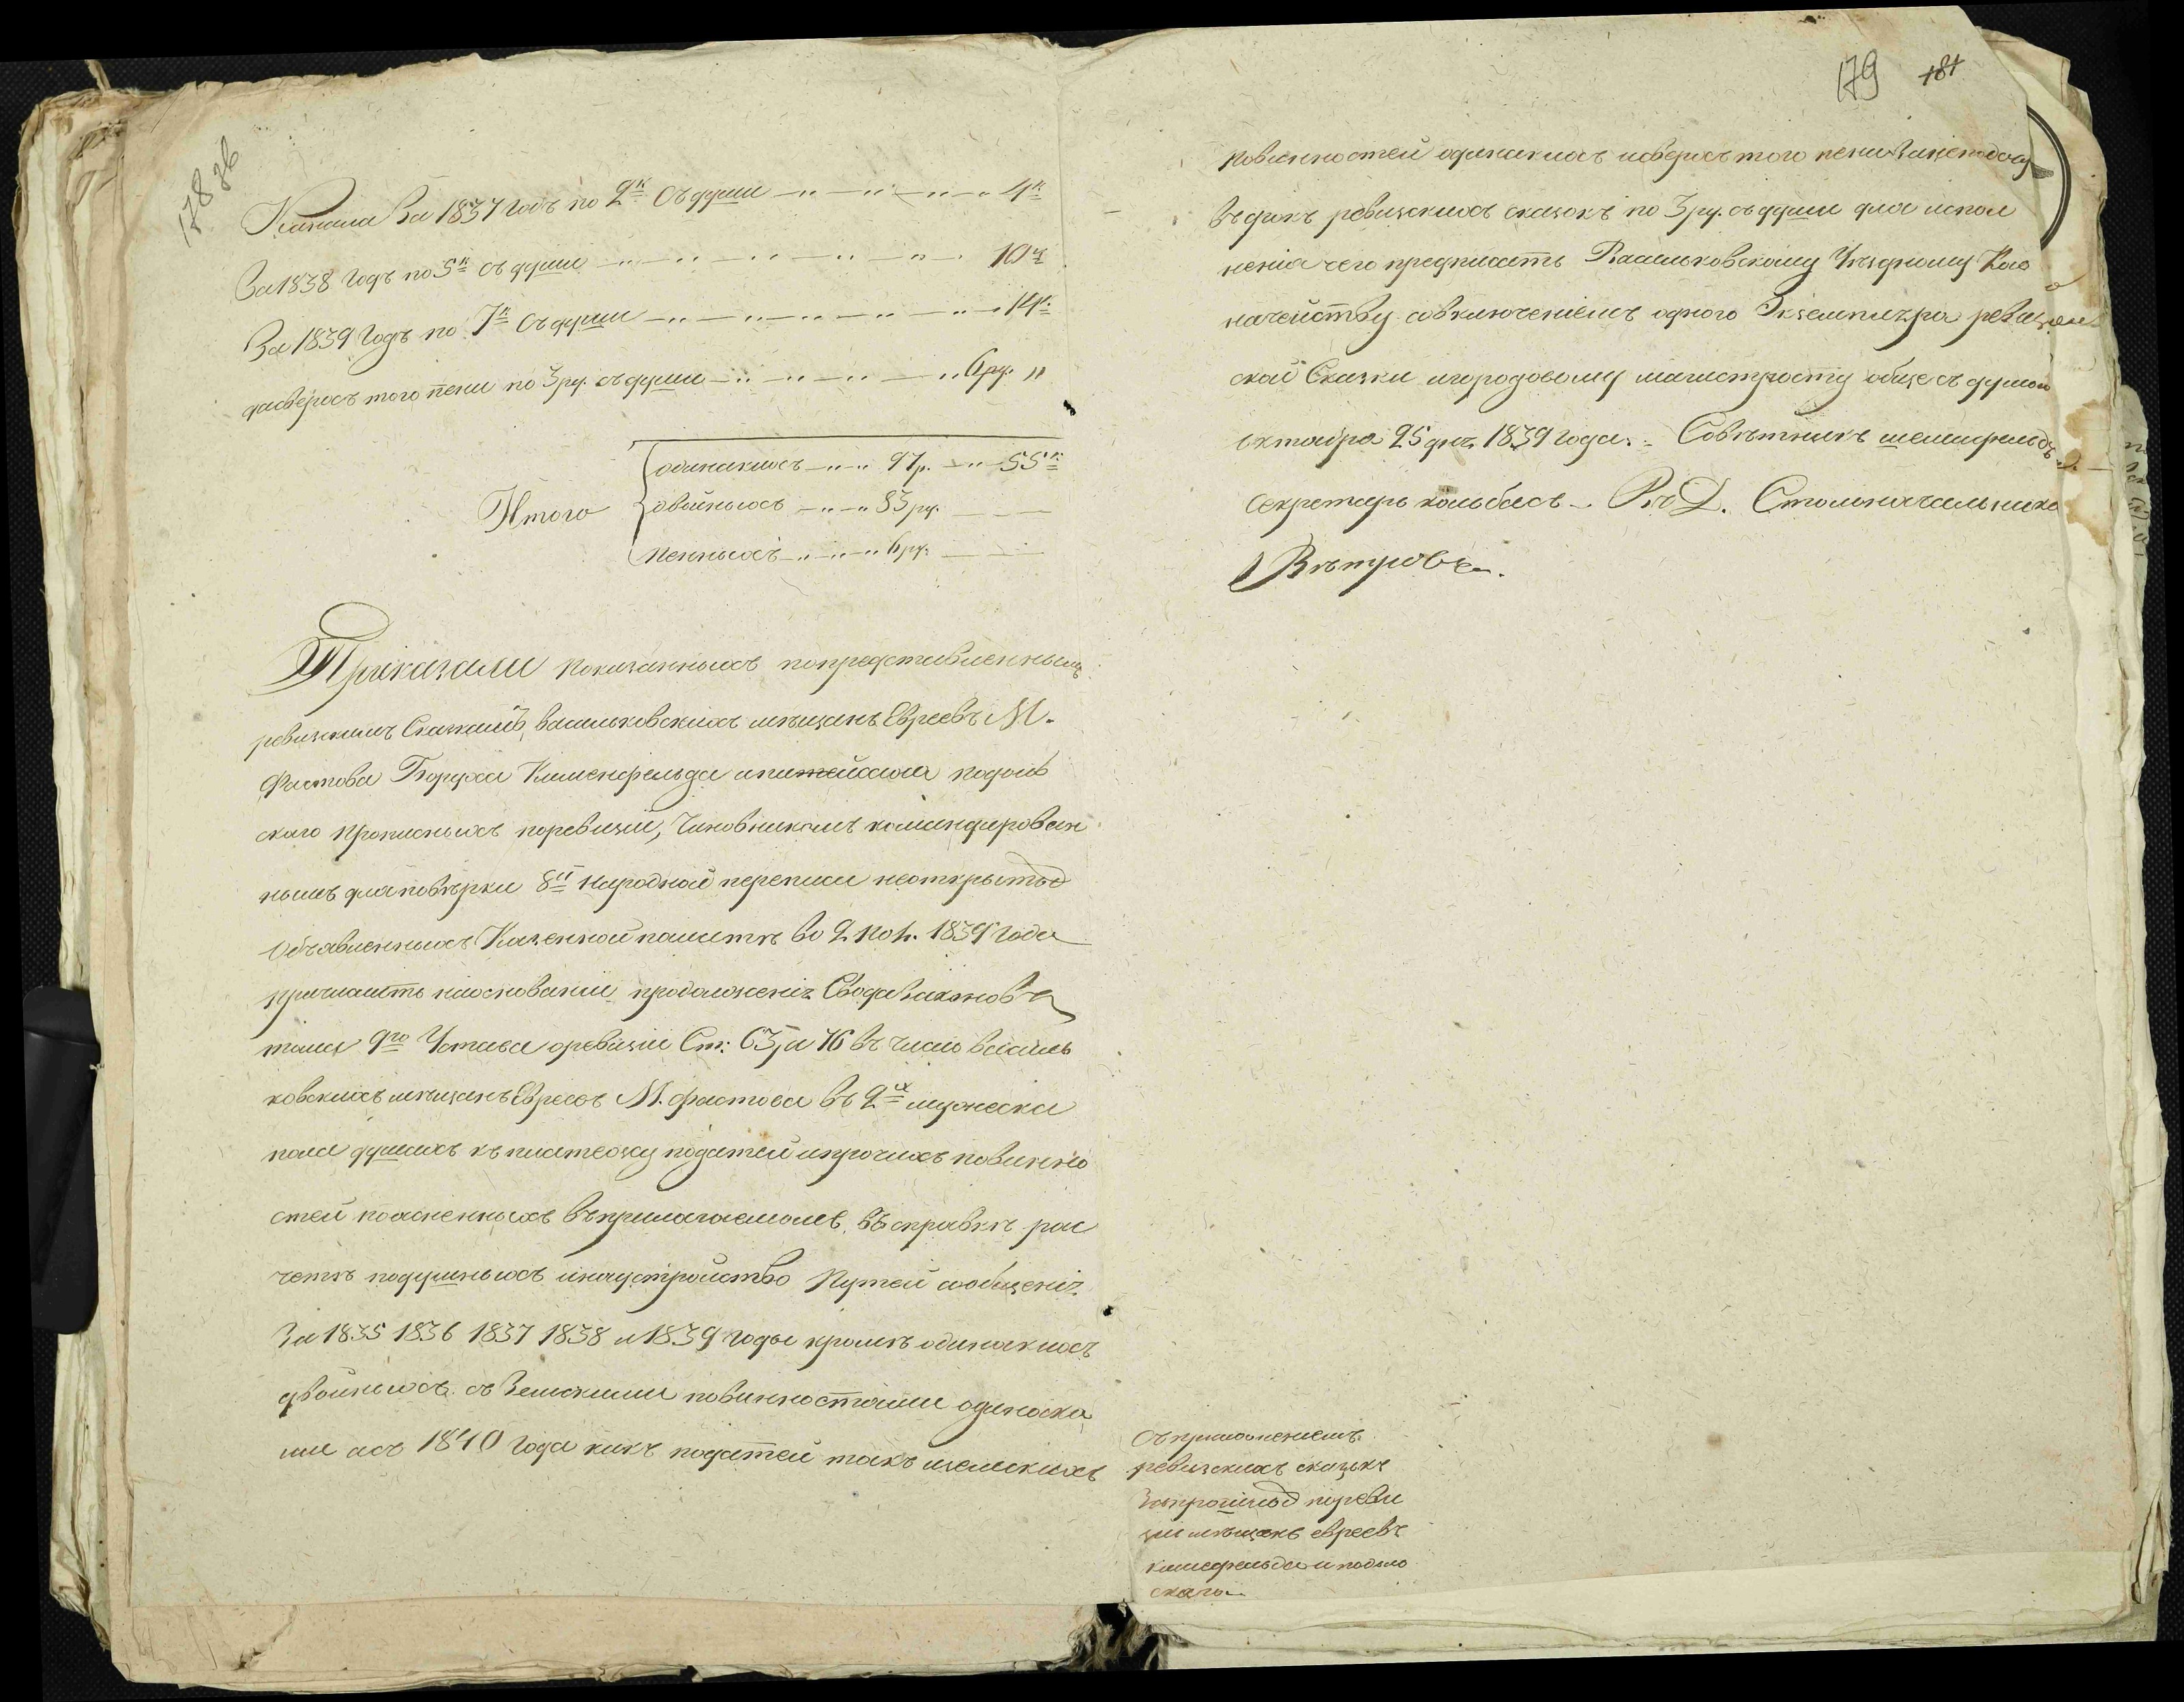 178 зв
Канала За 1837 Годъ по 2к Съ души — 4к
За 1838 Годъ по 5к съ души — 10к
За 1839 Годъ по 7к Съ души — 14к
дасверхъ того пени по 3 ру. съ души — 6 ру. "
Итого
одинакихъ — 97 р. — 55к
двойныхъ — 83 ру. —
пенныхъ — 6 ру. —
Приказали показанныхъ попредставленнымъ
ревизкимъ Сказкамъ, васильковскихъ мѣщанъ Евреевъ М.
Фастова Клименфельда подоль
скаго прописныхъ поревизіи, Чиновникомъ командирован
нымъ для повѣрки 8й народной переписи неоткрытыхъ
Объявленныхъ Казенной палатѣ во 2 пол. 1839 Года
причислить наосновании продолженія Свода Законовъ
тома 9го Устава оревизіи Ст: 63, и 76 въ число василь
ковскихъ мѣщанъ Евреевъ М. Фастова въ 2хъ мужеска
пола душахъ къ платежу податей ипрочихъ повинно
стей поясненныхъ въприлагаемомъ въ справкѣ рас
четѣ подушныхъ инаустройство Путей сообщенія
За 1835 1836 1837 1838 и 1839 годы кромѣ одинакихъ
двойныхъ съ Земскими повинностями одинаки
ми асъ 1840 Года какъ податей такъ иземскихъ
179 181
повинностей одинакихъ исверхъ того пени Занеподачу
въ срокъ ревизскихъ сказокъ по 3 ру. съ души для испол
ненія чего предписать Васильковскому Уѣздному Каз
начейству совключеніемъ одного Экземпляра ревиз
ской Сказки игородовому магистрату обще съ думою
октября 25 дня 1839 года. Совѣтникъ
Секретарь Кольбасъ. В. Д. Столоначальника
Вѣтровъ.
Съ приложениемъ
ревизскихъ сказокъ
опрописныхъ поревы
зіи мѣщанъ евреевъ
клименфельда и подоль
скаго